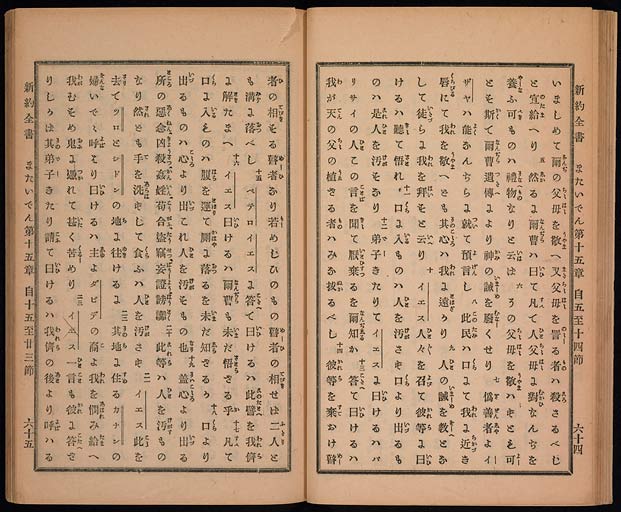 新約全書 またいでん第十五章 自五至十四節 六十四
いましめて爾の父母を敬へ又父母を詈る者ハ殺さるべし
と宣給へり 五 然るよ爾曹ハ曰て凡て人父母よ對なんぢを
養ふ可ものハ禮物なりと云バ 六 その父母を敬ハずとも可
とそ斯て爾曹遺傳よより神の誡を廢くせり 七 僞善者よイ
ザヤハ能なんぢらよ就て預言し 八 此民ハ口よて我よ近き
唇にて我を敬へども其心ハ我よ遠ざかり 九 人の誡を教とか
して徒らよ我を拜そと云り 十 イエス人々を召て彼等よ曰
けるハ聽て悟れ 十一 口よ入ものハ人を汚さず口より出るも
のハ是人を汚そかり 十二 弟子きたりてイエスよ曰けるハパ
リサイの人この言を聞て厭棄るを爾知か 十三 答て曰けるハ
我が天の父の植ざる者ハみな拔るべし 十四 彼等を棄おけ瞽
者の相する瞽者かり若めしひのもの瞽者の相せば二人と
も溝よ落べし 十五 ペテロイエスよ答て曰けるハ此譬を我儕
よ解たまへ 十六 イエス曰けるハ爾曹も未だ悟ざる乎 十七 凡て
口よ入ものハ腹を運て厠よ落るを未だ知ざるか 十八 口より
出るものハ心より出これ人を汚そもの也 十九 蓋心より出る
所の惡念凶殺姦婬苟合盜竊妄證謗讟 二十 此等ハ人を汚もの
なり然ども手を洗ずして食ふハ人を汚さず 二一 イエス此を
去てツロとシドンの地よ往けるよ 二二 其地よ住るカナンの
婦いでて呼より曰けるハ主よダビデの裔よ我を憫み給へ
我むすめ鬼よ憑れて甚く苦めり 二三 イエス一言も彼よ答ざ
りしかば其弟子きたり請て曰けるハ我儕の後より呼ハる
新約全書 またいでん第十五章 自十五至廿三節 六十五